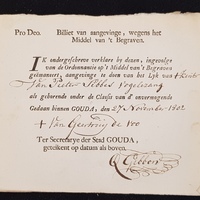 Pro Deo. Billiet van aangevinge, wegens het
Middel van 't Begraven.
IK ondergeschreven verklare by dezen, ingevolge
van de Ordonnantie op 't Middel van 't Begraven
geëmaneert, aangevinge te doen van het Lyk van
Jan Pieter Vogelesang
als gehorende onder de Classis van d' onvermogende
Gedaan binnen GOUDA, den 27 November 1802
+ Van Geertruij de Vos
Ter Secretarye der Stad GOUDA,
getekent op datum als boven.